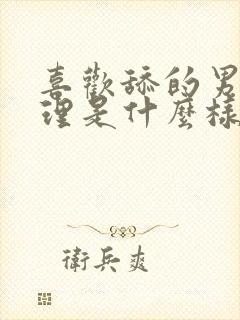 喜歡舔的男
理是什麼樣
衛兵爽